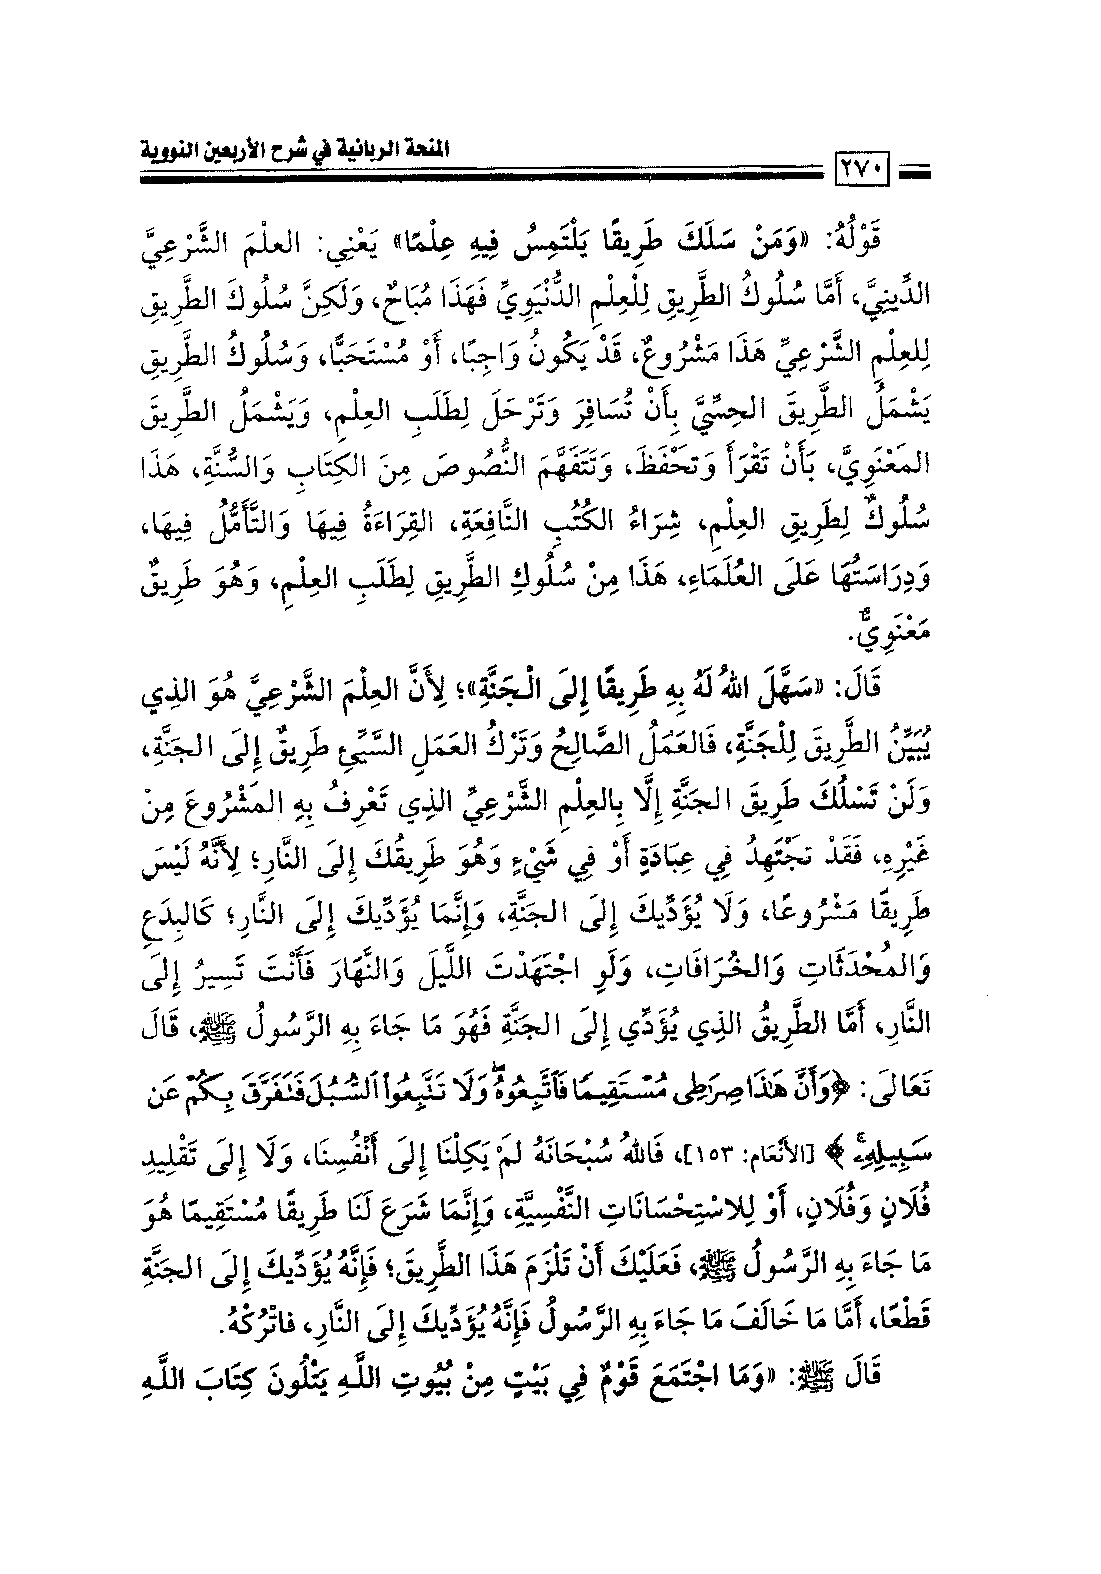 المنحة الربانية في شرح الأربعين النووية
٢٧٠
قَوْلُهُ: «وَمَنْ سَلَكَ طَرِيقًا يَلْتَمِسُ فِيهِ عِلْمًا» يَعْنِي: العِلْمَ الشَّرْعِيَّ
الدِّينِيَّ، أَمَّا سُلُوكُ الطَّرِيقِ لِلْعِلْمِ الدُّنْيَوِيِّ فَهَذَا مُبَاحٌ، وَلَكِنَّ سُلُوكَ الطَّرِيقِ
لِلعِلْمِ الشَّرْعِيِّ هَذَا مَشْرُوعٌ، قَدْ يَكُونُ وَاجِبًا، أَوْ مُسْتَحَبًّا، وَسُلُوكُ الطَّرِيقِ
يَشْمَلُ الطَّرِيقَ الحِسِّيَّ بِأَنْ تُسَافِرَ وَتَرْحَلَ لِطَلَبِ العِلْمِ، وَيَشْمَلُ الطَّرِيقَ
المَعْنَوِيَّ، بَأَنْ تَقْرَأَ وَتَحْفَظَ، وَتَتَفَهَّمَ النُّصُوصَ مِنَ الكِتَابِ وَالسُّنَّةِ، هَذَا
سُلُوكٌ لِطَرِيقِ العِلْمِ، شِرَاءُ الكُتُبِ النَّافِعَةِ، القِرَاءَةُ فِيهَا وَالتَّأَمُّلُ فِيهَا،
وَدِرَاسَتُهَا عَلَى العُلَمَاءِ، هَذَا مِنْ سُلُوكِ الطَّرِيقِ لِطَلَبِ العِلْمِ، وَهُوَ طَرِيقٌ
مَعْنَوِيٌّ.
قَالَ: «سَهَّلَ اللهُ لَهُ بِهِ طَرِيقًا إِلَى الْجَنَّةِ»؛ لِأَنَّ العِلْمَ الشَّرْعِيَّ هُوَ الذِي
يُبَيِّنُ الطَّرِيقَ لِلْجَنَّةِ، فَالعَمَلُ الصَّالِحُ وَتَرْكُ العَمَلِ السَّيِّئِ طَرِيقٌ إِلَى الجَنَّةِ،
وَلَنْ تَسْلُكَ طَرِيقَ الجَنَّةِ إِلَّا بِالعِلْمِ الشَّرْعِيِّ الذِي تَعْرِفُ بِهِ المَشْرُوعَ مِنْ
غَيْرِهِ، فَقَدْ تَجْتَهِدُ فِي عِبَادَةٍ أَوْ فِي شَيْءٍ وَهُوَ طَرِيقُكَ إِلَى النَّارِ؛ لِأَنَّهُ لَيْسَ
طَرِيقًا مَشْرُوعًا، وَلَا يُؤَدِّيكَ إِلَى الجَنَّةِ، وَإِنَّمَا يُؤَدِّيكَ إِلَى النَّارِ؛ كَالبِدَعِ
وَالمُحْدَثَاتِ وَالخُرَافَاتِ، وَلَوِ اجْتَهَدْتَ اللَّيْلَ وَالنَّهَارَ فَأَنْتَ تَسِيرُ إِلَى
النَّارِ، أَمَّا الطَّرِيقُ الذِي يُؤَدِّي إِلَى الجَنَّةِ فَهُوَ مَا جَاءَ بِهِ الرَّسُولُ ﷺ، قَالَ
تَعَالَى: ﴿وَأَنَّ هَٰذَا صِرَٰطِي مُسْتَقِيمًا فَٱتَّبِعُوهُۖ وَلَا تَتَّبِعُواْ ٱلسُّبُلَ فَتَفَرَّقَ بِكُمْ عَن
سَبِيلِهِۦۚ﴾ [الأنعَام: ١٥٣]، فَاللهُ سُبْحَانَهُ لَمْ يَكِلْنَا إِلَى أَنْفُسِنَا، وَلَا إِلَى تَقْلِيدِ
فُلَانٍ وَفُلَانٍ، أَوْ لِلاسْتِحْسَانَاتِ النَّفْسِيَّةِ، وَإِنَّمَا شَرَعَ لَنَا طَرِيقًا مُسْتَقِيمًا هُوَ
مَا جَاءَ بِهِ الرَّسُولُ ﷺ، فَعَلَيْكَ أَنْ تَلْزَمَ هَذَا الطَّرِيقَ؛ فَإِنَّهُ يُؤَدِّيكَ إِلَى الجَنَّةِ
قَطْعًا، أَمَّا مَا خَالَفَ مَا جَاءَ بِهِ الرَّسُولُ فَإِنَّهُ يُؤَدِّيكَ إِلَى النَّارِ، فاتْرُكْهُ.
قَالَ ﷺ: «وَمَا اجْتَمَعَ قَوْمٌ فِي بَيْتٍ مِنْ بُيُوتِ اللَّهِ يَتْلُونَ كِتَابَ اللَّهِ